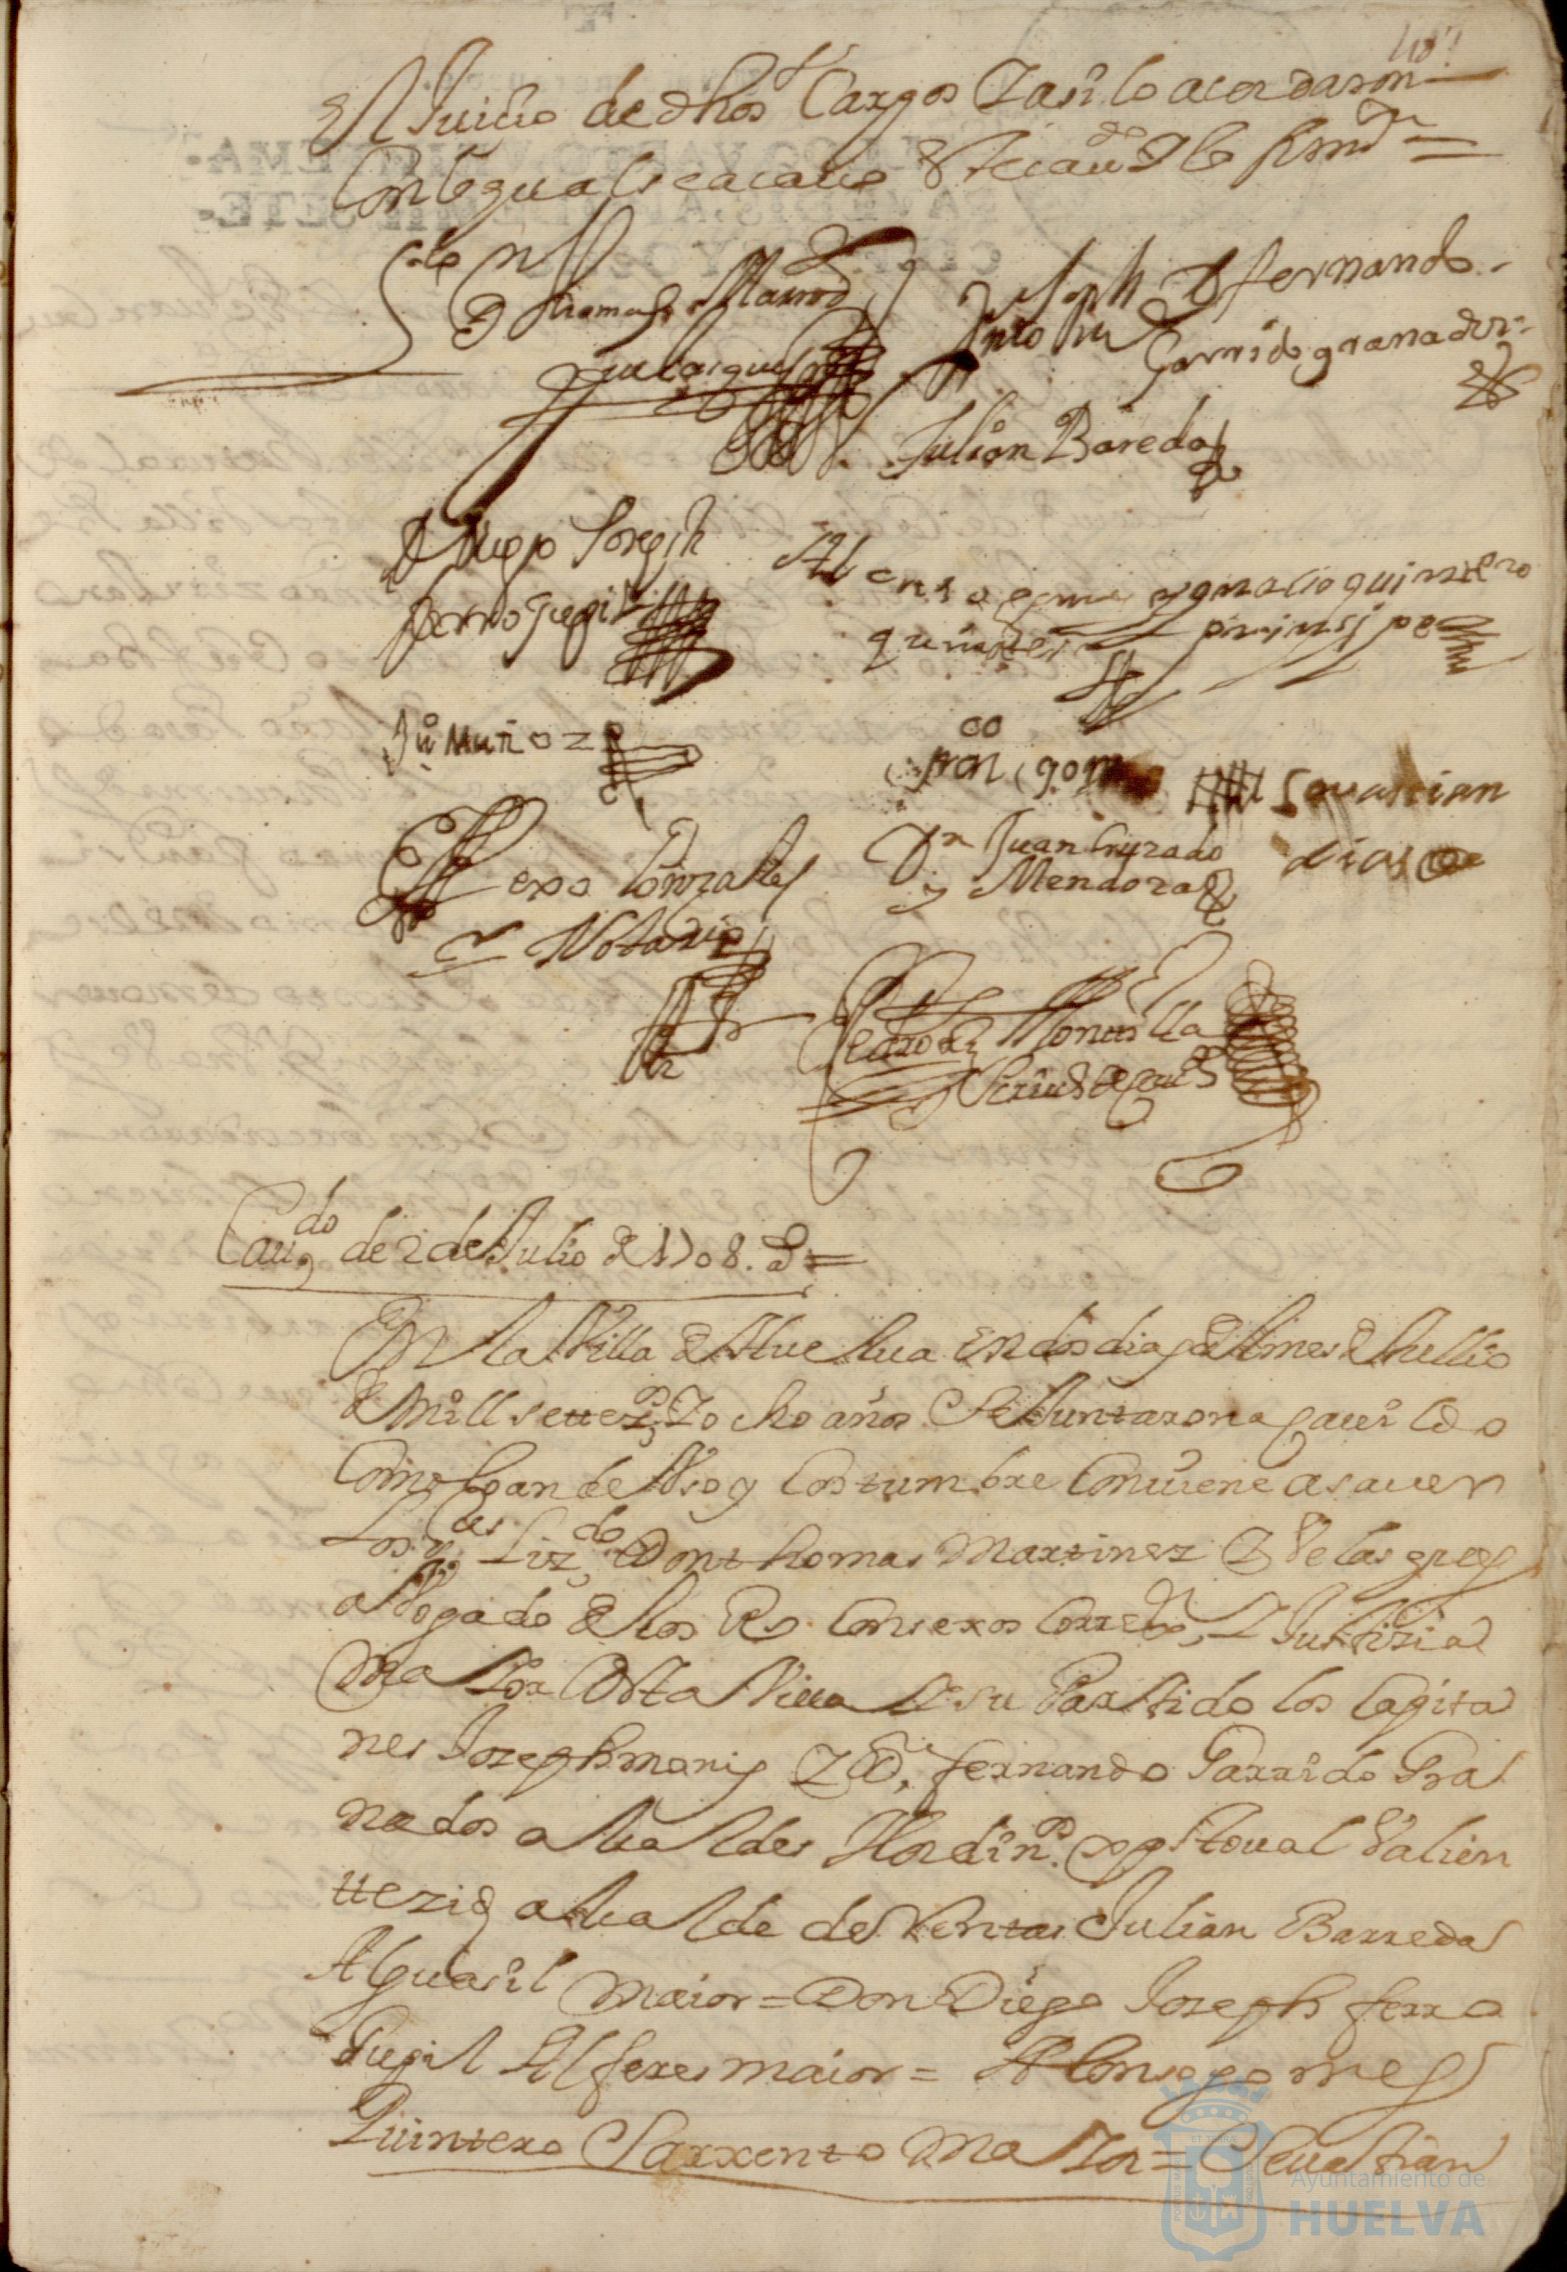 el Juicio de dhos Cargos Y asi lo acordaron
Con lo qual se acavo este cavdo Y lo firmn
Lizdo Dn thomas Martinez
Y velasques
Joseph
D fernando
Garrido granados
Julian Bareda
D Diego Joseph
ferro y pugil
Alonso gomes
quintero
ygnacio quintero
prinsipe
Ju Muñoz
franco gom
Sevastian
dias
Juan Cruzado
y Mendoza
Gonzales
Notario
Pedro de Monesilla
Scriuo de Cavdo
Cavdo de 2 de Julio de 1708 As
En la Villa de Huelva en dos dias del mes de Jullio
de mill settezs Y ocho años Se Juntaron a Cavildo
Como lo an de Uso y Costumbre Conviene a saver
Los Ses Lizdo Don thomas Martinez Y Velasques
abogado de los Rs Consexos Corregr Y Justizia
Maior Desta Villa de su Partido los Capita
nes Joseph moris Y D, fernando Garrido Gra
nados alcaldes Hordins xpstoval Valien
tte alcalde de Ventas Julian Barreda
Alguasil Maior = Don Diego Joseph ferro
Pugil Alferes maior = Alonso gomes
Quintero Sarxento Maior = Sevastian
Ayuntamiento de
HUELVA